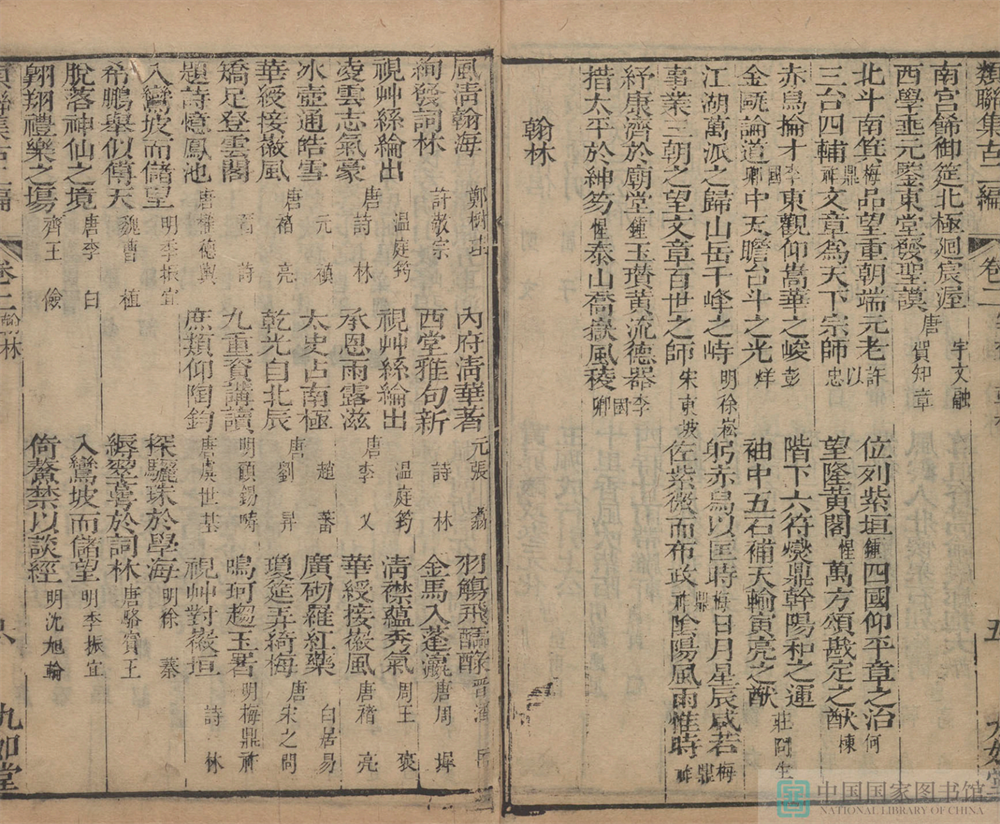 類聯集古二編
卷二
五
九如堂
南宮歸御筵北極廻宸渥 宇文融
西學垂元鑒東堂發聖謨 唐賀知章
北斗南箕梅品望重朝端元老許
位列紫垣鍾四國仰平章之治何
三台四輔梅鼎祚文章為天下宗師以忠
望隆黃閣惺萬方頌戡定之猷棟
赤舄掄才李國東觀仰嵩華之峻彭
階下六符燮鼎幹陽和之運莊
金甌論道卿中天瞻台斗之光烊
袖中五石補天輸寅亮之猷阿生
江湖萬派之歸山岳千峰之峙明徐崧
躬赤舄以匡時梅鼎日月星辰咸若梅
事業三朝之望文章百世之師宋東坡
佐紫微而布政祚陰陽風雨惟時鼎祚
紓康濟於廟堂鍾玉瓚黃流德器李
措太平於紳笏惺泰山喬嶽風稜國卿
翰林
風清翰海 鄭樹珪
內府清華著 元張翥
羽觴飛醽醁 晉
絢發詞林 許敬宗
西堂雅句新 詩林
金馬入蓬瀛 唐周墀
視艸絲綸出 溫庭筠
視艸絲綸出 溫庭筠
清襟蘊秀氣 周王褒
凌雲志氣豪 唐詩林
承恩雨露滋 唐李乂
華綬接嶶風 唐褚亮
冰壺通皓雪 元稹
太史占南極 趙蕃
廣砌羅紅藥 白居易
華綬接嶶風 褚亮
乾光自北辰 唐劉昇
瓊筵弄綺梅 唐宋之問
矯足登雲閣
九重資講讀 明顧錫疇
鳴珂趨玉署 明梅鼎祚
題詩憶鳳池 唐權德輿
庶類仰陶鈞 唐虞世基
視艸對嶶垣 詩林
入鸞坡而儲望 明李振宜
探驪珠於學海 明徐
希鵬舉似傳天 魏曹植
縟翠喜於詞林 唐駱賓王
脫落神仙之境 唐李白
入鸞坡而儲望 明李振宜
翱翔禮樂之場 齊王儉
倚鰲禁以談經 明沈旭輪
類聯集古二編
卷二 翰林
九如堂
中国国家图书馆
NATIONAL LIBRARY OF CHINA